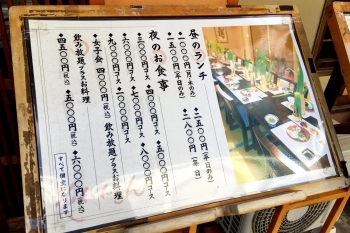 昼のランチ
◆一〇〇〇円(月・木のみ)
◆一五〇〇円(平日のみ) ◆二五〇〇円(平日のみ)
◆二八〇〇円(平日)
夜のお食事
◆三〇〇〇円コース ◆四〇〇〇円コース ◆五〇〇〇円コース
◆六〇〇〇円コース ◆七〇〇〇円コース ◆八〇〇〇円コース
◆九〇〇〇円コース ◆一〇〇〇〇円コース
◆女子会 四〇〇〇円(税込) 飲み放題プラスお料理
飲み放題プラスお料理
◆四五〇〇円(税込) ◆五〇〇〇円(税込) ◆六〇〇〇円(税込)
すべて個室になります